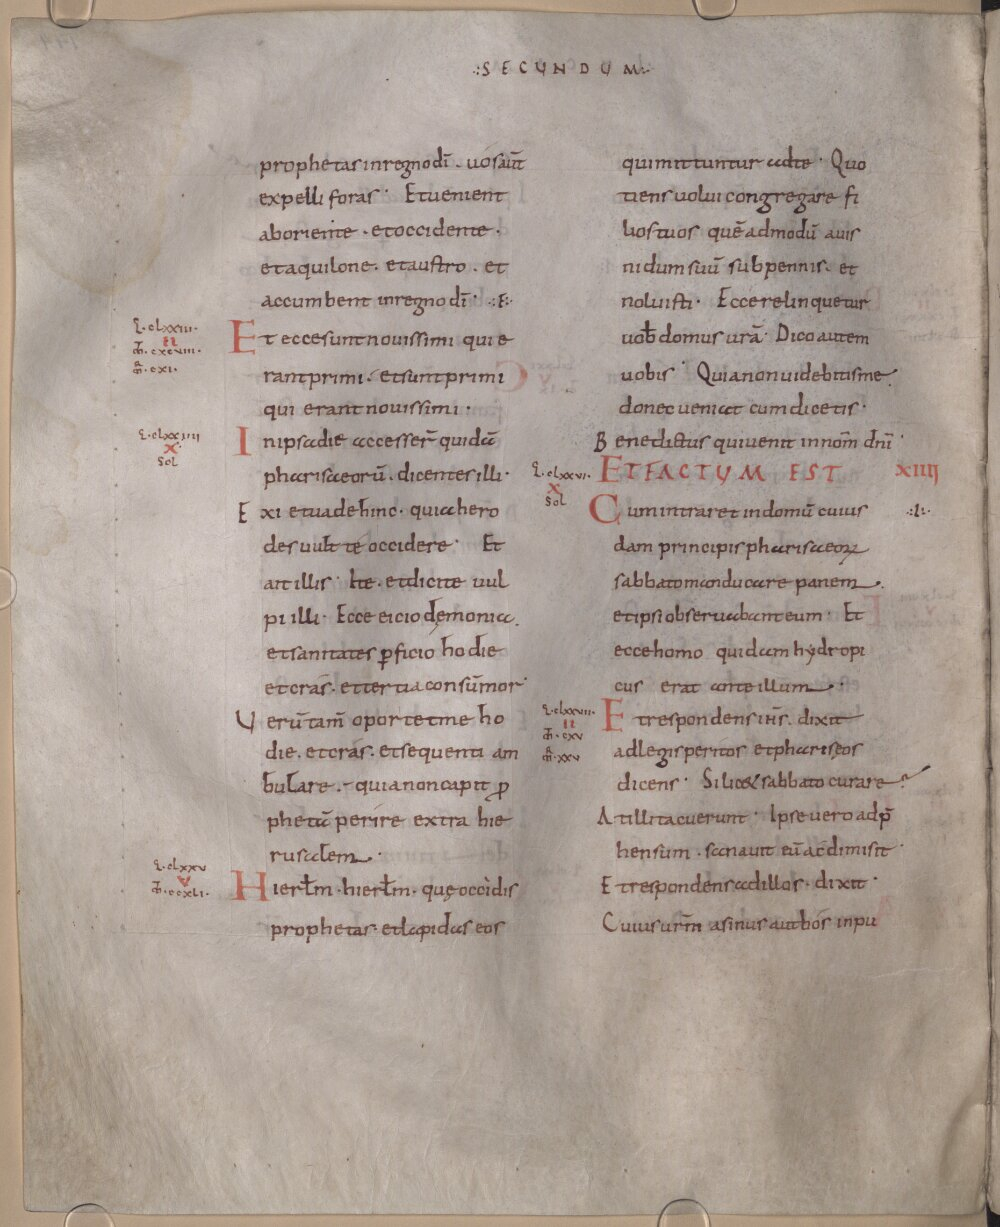 ·:SECUNDUM:·
prophetas in regno dī . uos aut̄
expelli foras · Et uenient
ab oriente · et occidente ·
et aquilone · et austro · et
accumbent in regno dī ·
L· clxxiii·
II
M̄· cxcviiii·
M̄· cxi·
Et ecce sunt nouissimi qui e
rant primi · et sunt primi
qui erant nouissimi ·
L· clxxiiii
X
Sol
In ipsa die accesser̄ quidā
pharisaeorū · dicentes illi ·
Exi et uade hinc · quia hero
des uult te occidere · Et
ait illis · Ite · et dicite uul
pi illi · Ecce eicio demonia ·
et sanitates ꝑficio hodie
et cras · et tertia consūmor ·
Uerūtam̄ oportet me ho
die · et cras · et sequenti am
bulare · quia non capit ꝓ
phetā perire extra hie
rusalem ·
L· clxxv
V
M̄· ccxli·
Hierłm · hierłm · quę occidis
prophetas · et lapidas eos
qui mittuntur ad te · Quo
tiens uolui congregare fi
lios tuos quēadmodū auis
nidum suū sub pennis · et
noluisti · Ecce relinquetur
uob̄ domus urā · Dico autem
uobis · Quia non uidebitis me
donec ueniat cum dicetis ·
Benedictus qui uenit in nom̄ dn̄i ·
L· clxxvi·
X
Sol
ET FACTUM EST XIIII
Cum intraret in domū cuius ·:l:·
dam principis pharisaeoꝝ
sabbato manducare panem ·
et ipsi obseruabant eum · Et
ecce homo quidam hydropi
cus erat ante illum ·
L· clxxvii·
II
M̄· cxv
M̄· xxv
Et respondens ih̄s · dixit
ad legis peritos et phariseos
dicens · Si licet sabbato curare ?
At illi tacuerunt · Ipse uero adp̄
hensum · sanauit eū ac dimisit ·
Et respondens ad illos · dixit ·
Cuius urm̄ asinus aut bos in pu